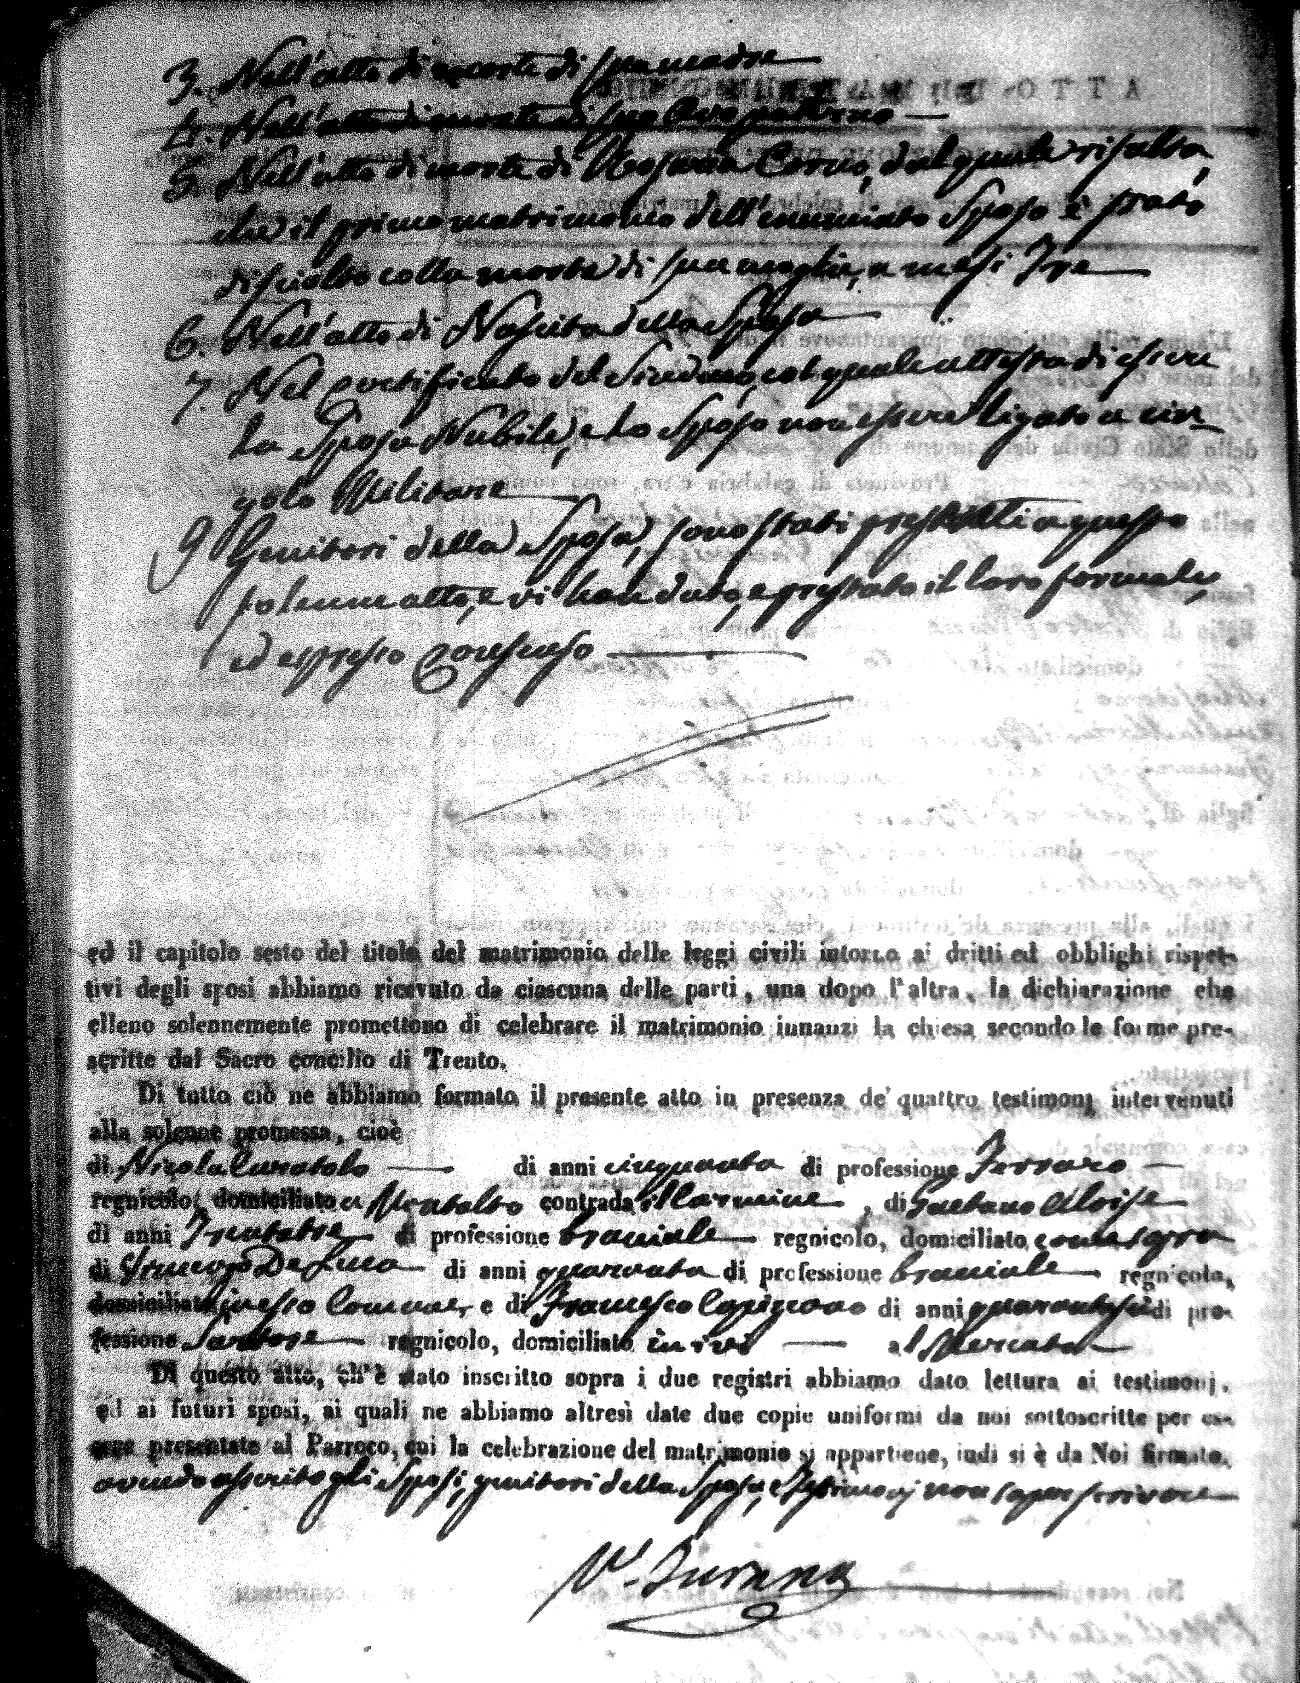 3. Nell'atto di morte di sua madre
4. Nell'atto di morte di suo Avo paterno
5. Nell'atto di morte di Rosaria Corno, dal quale risulta,
che il primo matrimonio dell'enunciato Sposo è stato
disciolto colla morte di sua moglie, a mesi Tre
6. Nell'atto di Nascita della Sposa
7. Nel certificato del Sindaco, col quale attesta di essere
la Sposa Nubile, e lo Sposo non essere ligato a vin-
golo Militare
I Genitori della Sposa, sono stati presenti a questo
solenne atto, e vi han dato, e prestato il loro formale,
ed espresso Consenso
ed il capitolo sesto del titolo del matrimonio delle leggi civili intorno ai dritti ed obblighi rispet-
tivi degli sposi abbiamo ricevuto da ciascuna delle parti, una dopo l'altra, la dichiarazione che
elleno solennemente promettono di celebrare il matrimonio innanzi la chiesa secondo le forme pre-
scritte dal Sacro concilio di Trento.
Di tutto ciò ne abbiamo formato il presente atto in presenza de' quattro testimonj intervenuti
alla solenne promessa, cioè
di Nicola Curatolo di anni cinquanta di professione Ferraro
regnicolo, domiciliato a Montalto contrada il Carmine, di Gaetano Aloise
di anni Trentatre di professione bracciale regnicolo, domiciliato come sopra
di De Luca di anni quaranta di professione bracciale regnicolo,
domiciliato in esso Comune, e di Francesco di anni quarantasei di pro-
fessione Sartore regnicolo, domiciliato in ivi al Mercato
Di questo atto, ch'è stato inscritto sopra i due registri abbiamo dato lettura ai testimonj,
ed ai futuri sposi, ai quali ne abbiamo altresì date due copie uniformi da noi sottoscritte per es-
sere presentate al Parroco, cui la celebrazione del matrimonio si appartiene, indi si è da Noi firmato,
avendo asserito gli Sposi, genitori della Sposa, e Testimonj non saper scrivere